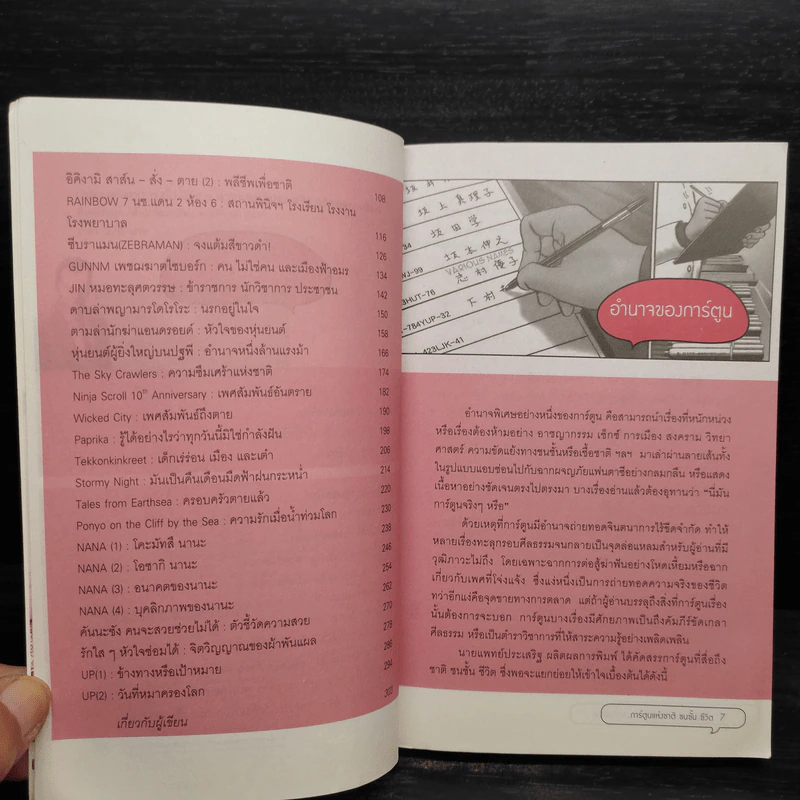 อิคิงามิ สาส์น – สั่ง – ตาย (2) : พลีชีพเพื่อชาติ 108
RAINBOW 7 นช.แดน 2 ห้อง 6 : สถานพินิจฯ โรงเรียน โรงงาน
โรงพยาบาล 116
ซีบราแมน(ZEBRAMAN) : จงแต้มสีขาวดำ! 126
GUNNM เพชฌฆาตไซบอร์ก : คน ไม่ใช่คน และเมืองฟ้าอมร 134
JIN หมอทะลุศตวรรษ : ข้าราชการ นักวิชาการ ประชาชน 142
ดาบล่าพญามารโดโรโระ : นรกอยู่ในใจ 150
ตามล่านักฆ่าแอนดรอยด์ : หัวใจของหุ่นยนต์ 158
หุ่นยนต์ผู้ยิ่งใหญ่บนปฐพี : อำนาจหนึ่งล้านแรงม้า 166
The Sky Crawlers : ความซึมเศร้าแห่งชาติ 174
Ninja Scroll 10th Anniversary : เพศสัมพันธ์อันตราย 182
Wicked City : เพศสัมพันธ์ถึงตาย 190
Paprika : รู้ได้อย่างไรว่าทุกวันนี้มิใช่กำลังฝัน 198
Tekkonkinkreet : เด็กเร่ร่อน เมือง และเต๋า 206
Stormy Night : มันเป็นคืนเดือนมืดฟ้าฝนกระหน่ำ 214
Tales from Earthsea : ครอบครัวตายแล้ว 220
Ponyo on the Cliff by the Sea : ความรักเมื่อน้ำท่วมโลก 230
NANA (1) : โคะมัทสึ นานะ 238
NANA (2) : โอซากิ นานะ 246
NANA (3) : อนาคตของนานะ 254
NANA (4) : บุคลิกภาพของนานะ 262
คันนะซัง คนจะสวยช่วยไม่ได้ : ตัวชี้วัดความสวย 270
รักใส ๆ หัวใจซ่อมได้ : จิตวิญญาณของผ้าพันแผล 278
UP(1) : ข้างทางหรือเป้าหมาย 286
UP(2) : วันที่หมาครองโลก 294
เกี่ยวกับผู้เขียน 302
坂上真理子
坂田学
坂本伸之
志村優子
下村
34
NJ-99
3HUT-76
-784YUP-32
423LJK-41
VARIOUS NAMES
อำนาจของการ์ตูน
อำนาจพิเศษอย่างหนึ่งของการ์ตูน คือสามารถนำเรื่องที่หนักหน่วง
หรือเรื่องต้องห้ามอย่าง อาชญากรรม เซ็กซ์ การเมือง สงคราม วิทยา
ศาสตร์ ความขัดแย้งทางชนชั้นหรือเชื้อชาติ ฯลฯ มาเล่าผ่านลายเส้นทั้ง
ในรูปแบบแอบซ่อนไปกับฉากผจญภัยแฟนตาซีอย่างกลมกลืน หรือแสดง
เนื้อหาอย่างชัดเจนตรงไปตรงมา บางเรื่องอ่านแล้วต้องอุทานว่า “นี่มัน
การ์ตูนจริงๆ หรือ”
ด้วยเหตุที่การ์ตูนมีอำนาจถ่ายทอดจินตนาการไร้ขีดจำกัด ทำให้
หลายเรื่องทะลุกรอบศีลธรรมจนกลายเป็นจุดล่อแหลมสำหรับผู้อ่านที่มี
วุฒิภาวะไม่ถึง โดยเฉพาะฉากการต่อสู้ฆ่าฟันอย่างโหดเหี้ยมหรือฉาก
เกี่ยวกับเพศที่โจ่งแจ้ง ซึ่งแง่หนึ่งเป็นการถ่ายทอดความจริงของชีวิต
ทว่าอีกแง่คือจุดขายทางการตลาด แต่ถ้าผู้อ่านบรรลุถึงสิ่งที่การ์ตูนเรื่อง
นั้นต้องการจะบอก การ์ตูนบางเรื่องมีศักยภาพเป็นถึงคัมภีร์ขัดเกลา
ศีลธรรม หรือเป็นตำราวิชาการที่ให้สาระความรู้อย่างเพลิดเพลิน
นายแพทย์ประเสริฐ ผลิตผลการพิมพ์ ได้คัดสรรการ์ตูนที่สื่อถึง
ชาติ ชนชั้น ชีวิต ซึ่งพอจะแยกย่อยให้เข้าใจเบื้องต้นได้ดังนี้
การ์ตูนแห่งชาติ ชนชั้น ชีวิต 7